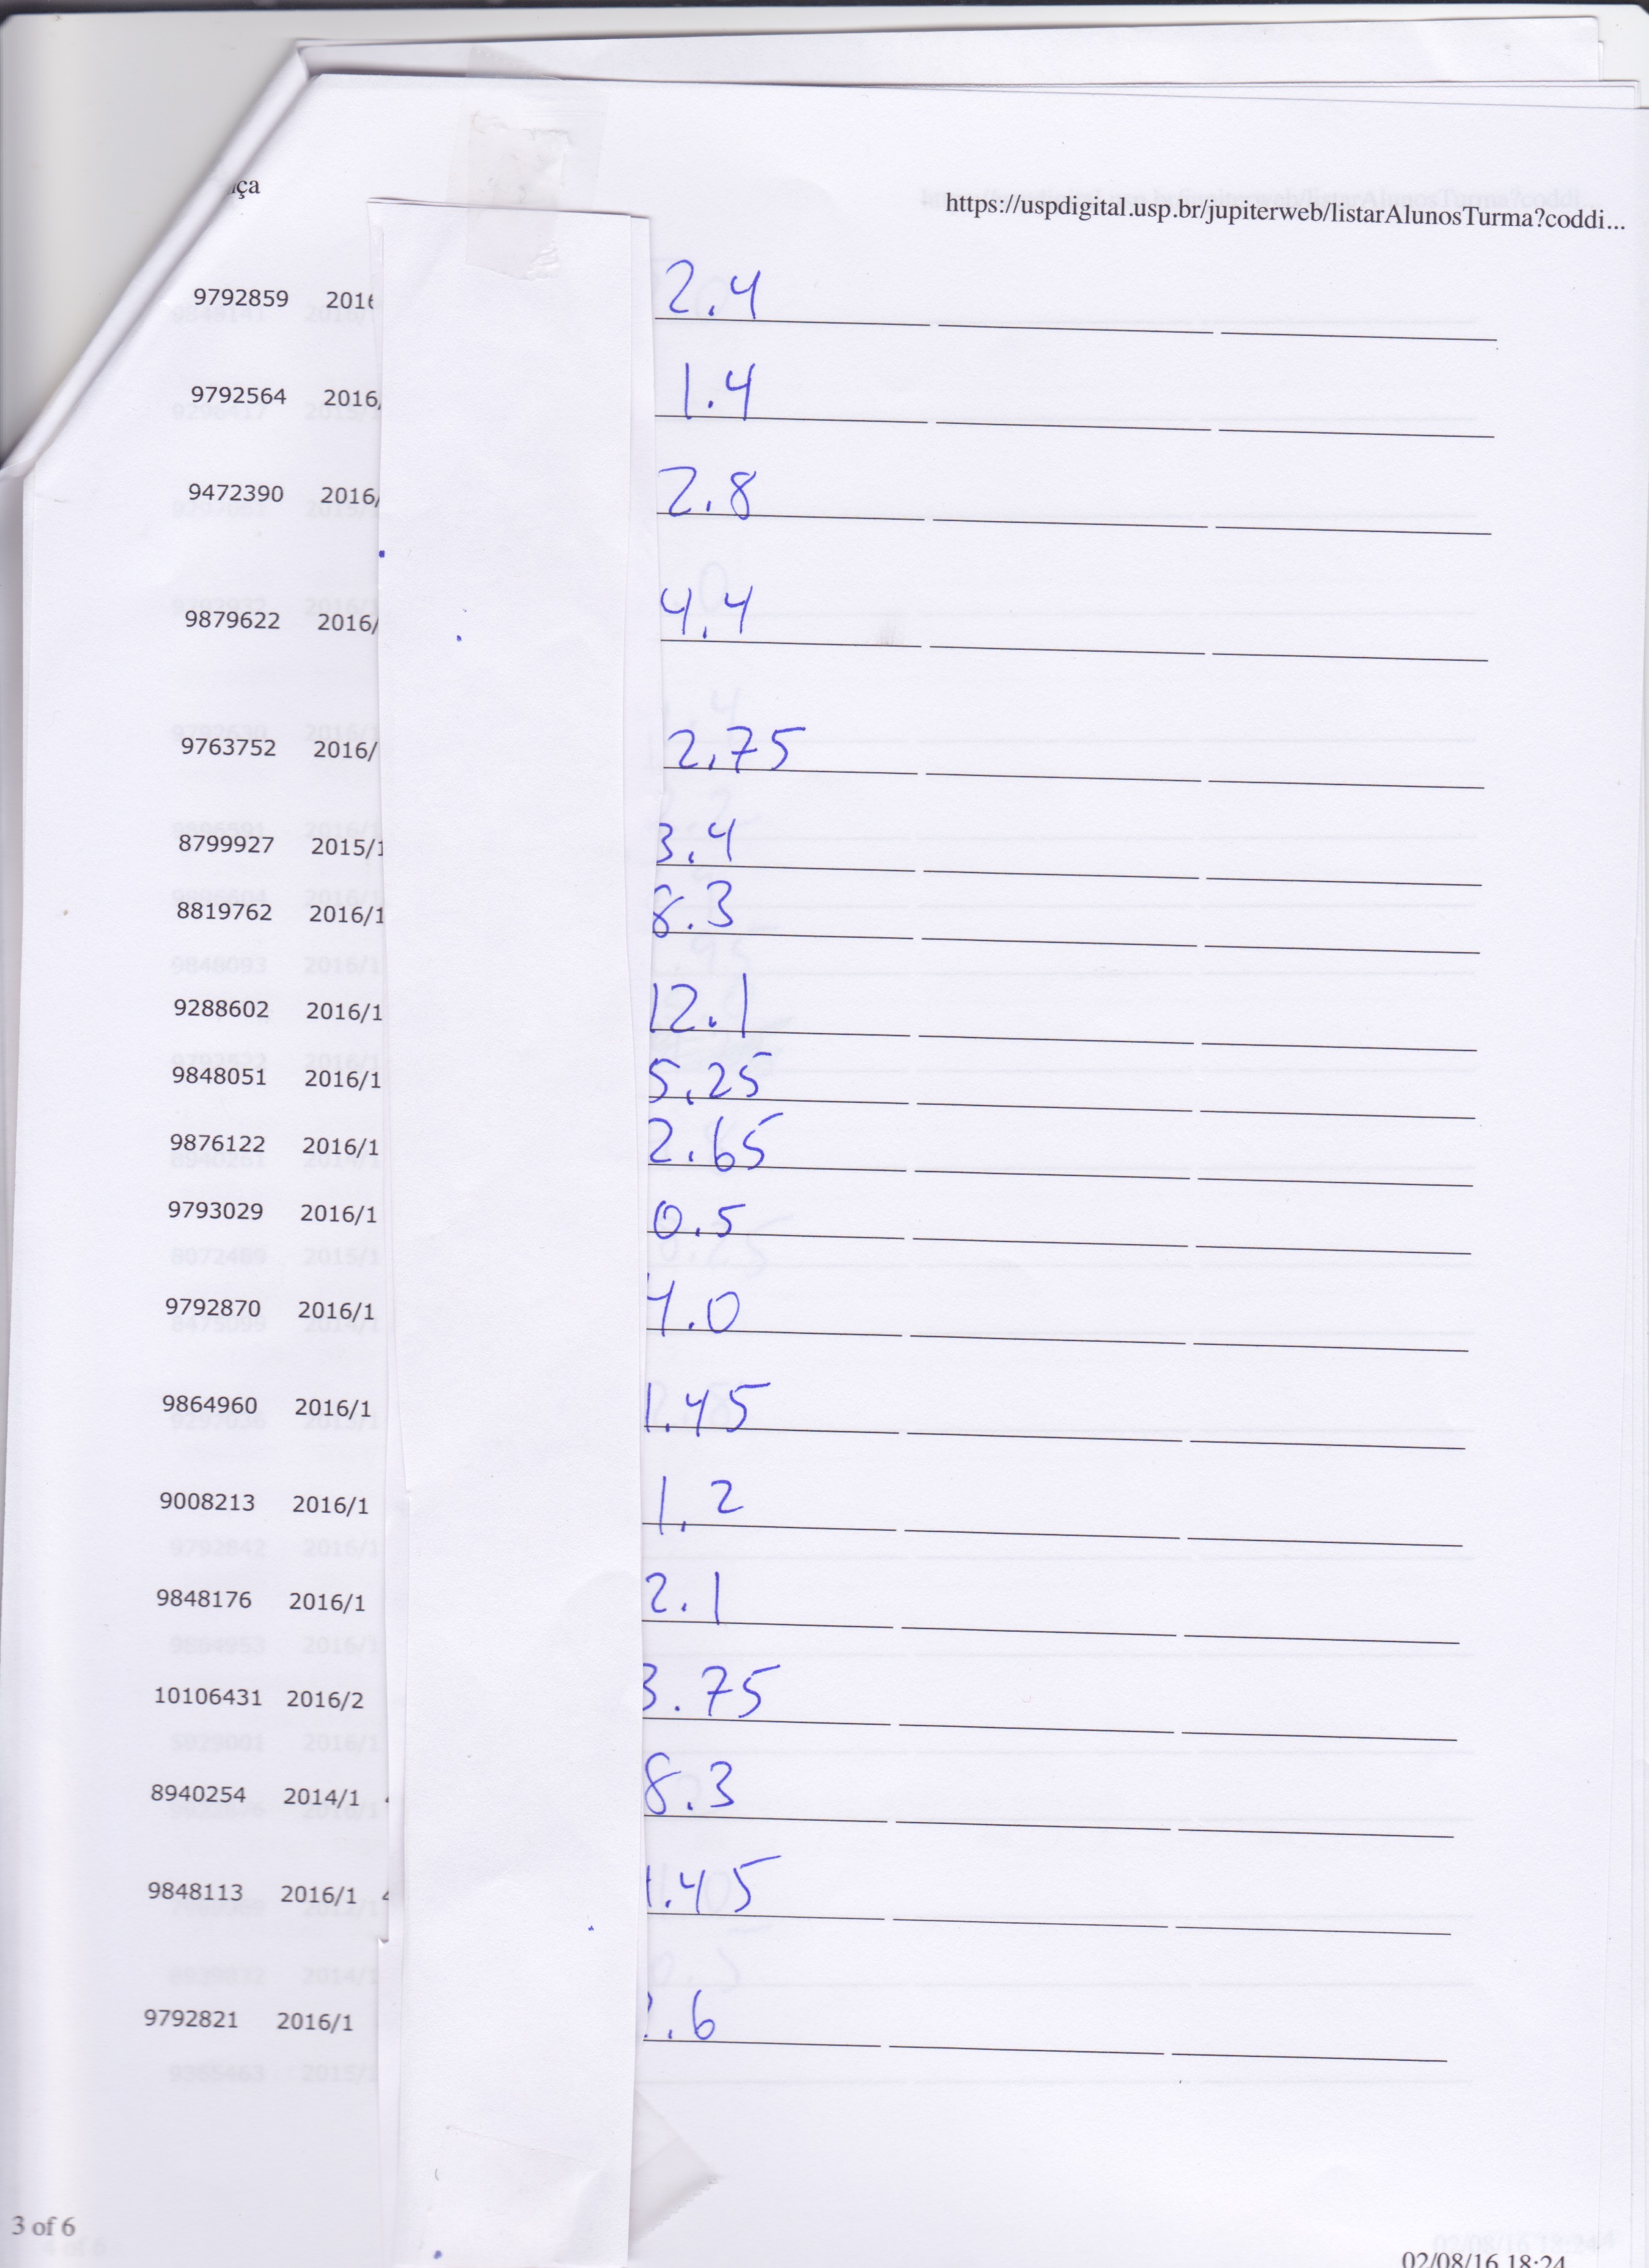 ça
https://uspdigital.usp.br/jupiterweb/listarAlunosTurma?coddi...
9792859 2016 2.4
9792564 2016/ 1.4
9472390 2016/ 2.8
9879622 2016/ 4.4
9763752 2016/ 2.75
8799927 2015/1 3.4
8819762 2016/1 8.3
9288602 2016/1 12.1
9848051 2016/1 5.25
9876122 2016/1 2.65
9793029 2016/1 0.5
9792870 2016/1 4.0
9864960 2016/1 1.45
9008213 2016/1 1.2
9848176 2016/1 2.1
10106431 2016/2 3.75
8940254 2014/1 8.3
9848113 2016/1 1.45
9792821 2016/1 .6
3 of 6
02/08/16 18:24